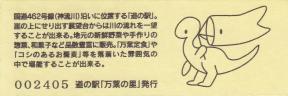 国道462号線(神流川)沿いに位置する「道の駅」。
崖の上にせり出す展望台からは川の流れを一望
することが出来る。地元の新鮮野菜や手作りの
惣菜、和菓子など品数豊富に販売。「万葉定食」や
「コシのあるお蕎麦」等を落着いた雰囲気の
中で堪能することが出来る。
002405 道の駅「万葉の里」発行